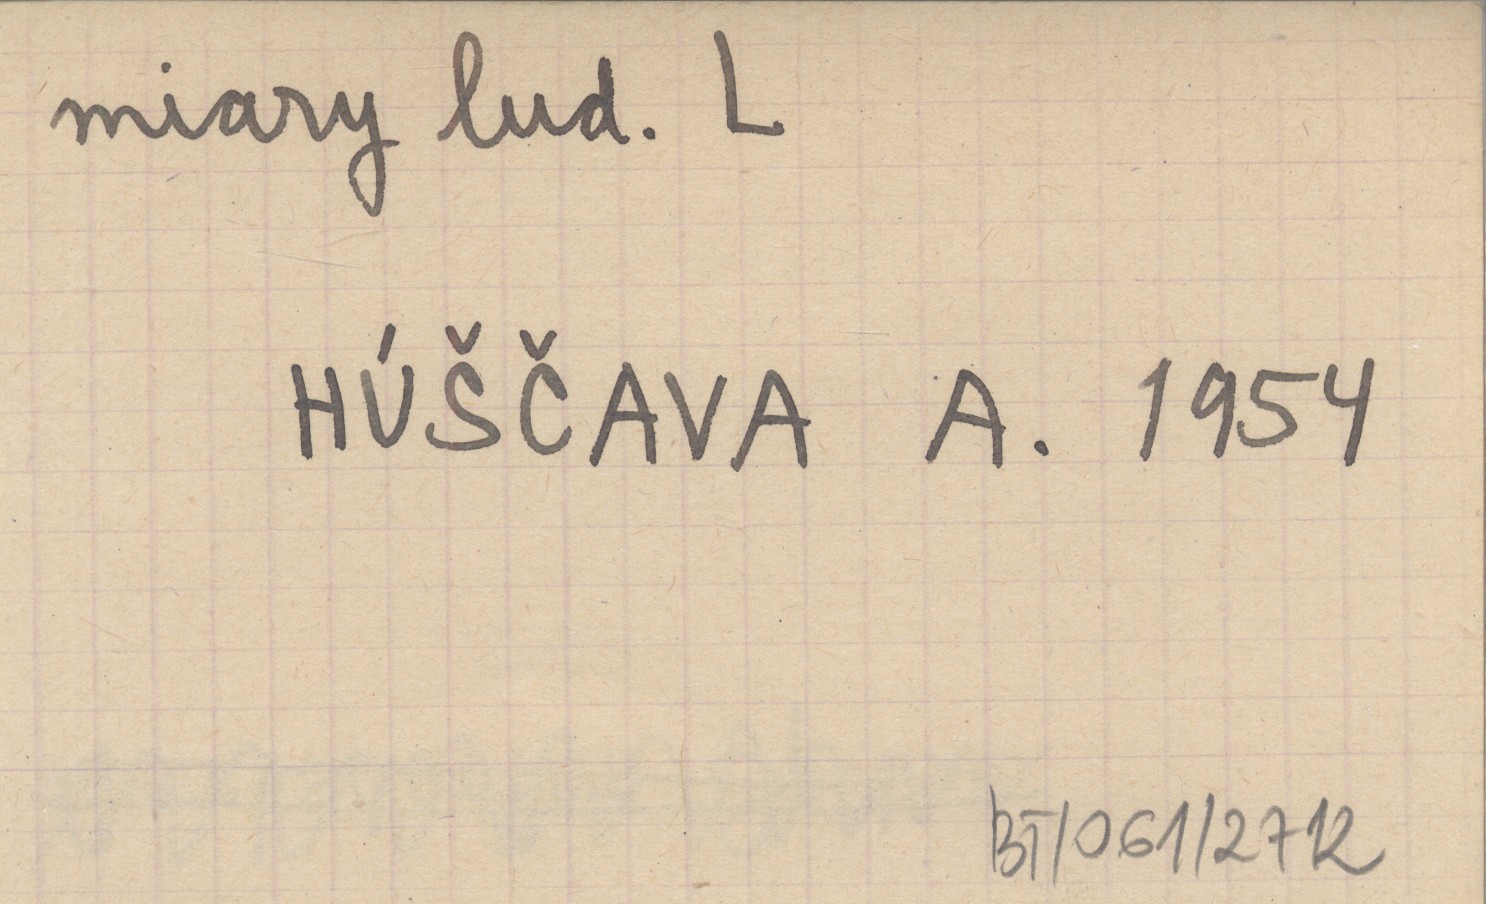 miary lud. L
HÚŠČAVA A. 1954
BT/061/2712